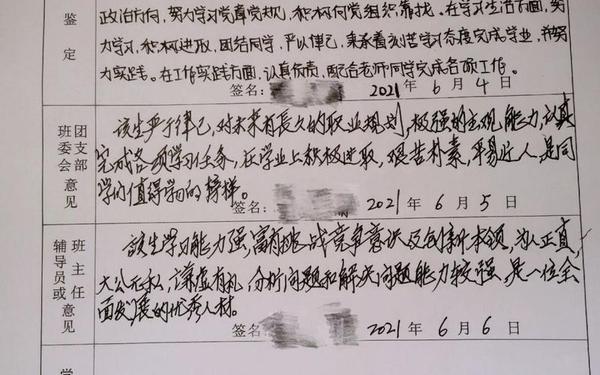 鉴定
政治方向，努力学习党章党规，积极向党组织靠拢。在学习生活方面，努
力学习，积极进取，团结同学，严以律己，秉承着刻苦学习态度完成学业，并努
力实践。在工作实践方面，认真负责，配合老师同学完成各项工作。
签名： 2021 年 6 月 4 日
团支部
班委会
意见
该生严于律己，对未来有长久的职业规划，极强的主观能力，认真
完成各项学习任务，在学业上积极进取，艰苦朴素，平易近人，是同
学们值得学习的榜样。
签名： 2021 年 6 月 5 日
班主任
辅导员或
意见
该生学习能力强，富有挑战竞争意识及创新本领，为人正直，
大公无私，谦虚有礼，分析问题和解决问题能力较强，是一位全
面发展的优秀人材。
签名： 2021 年 6 月 6 日
学